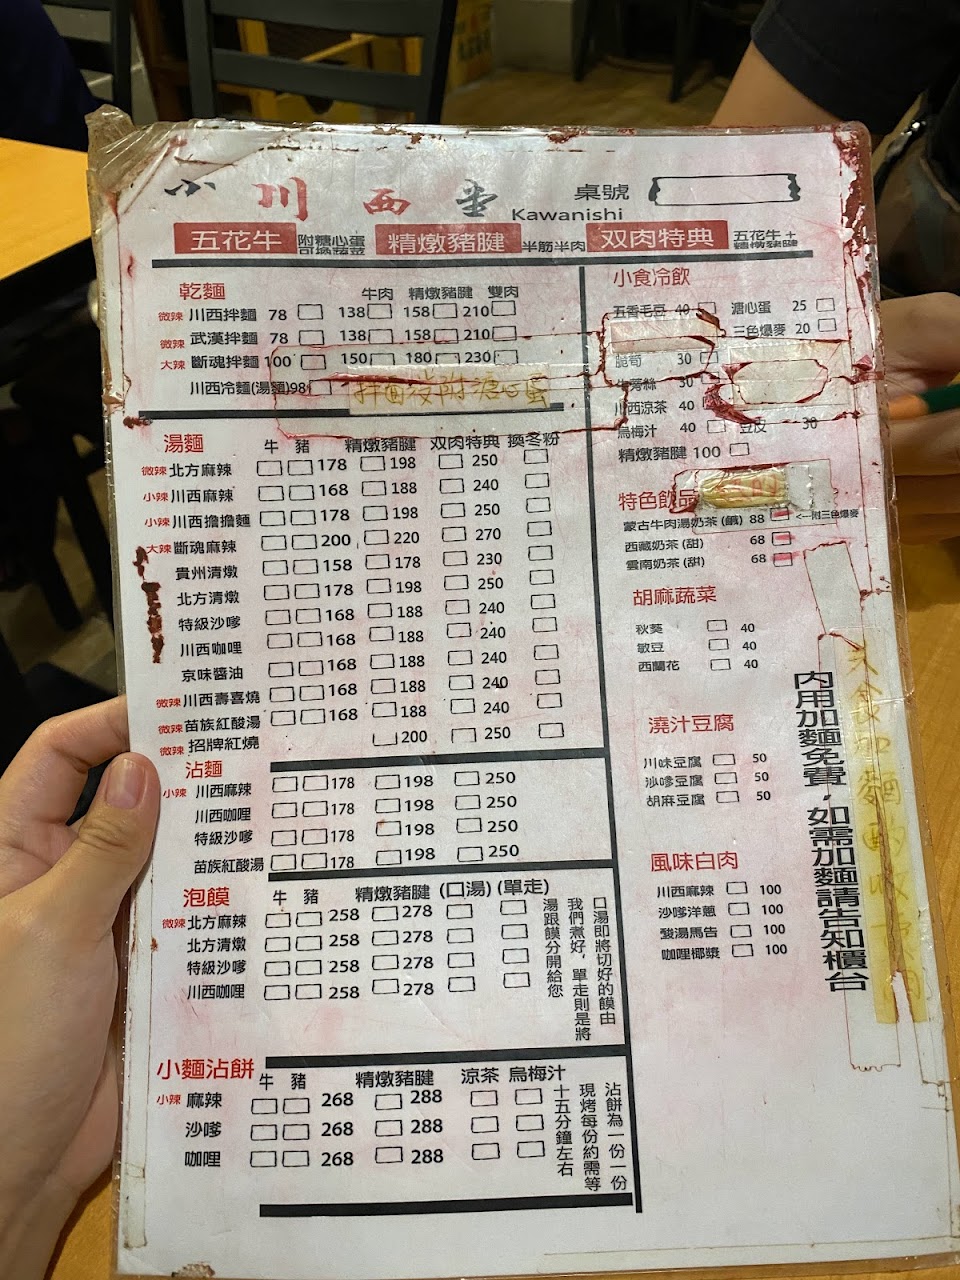 小川西堂 桌號
Kawanishi
五花牛 附糖心蛋 可換蔬菜 精燉豬腱 半筋半肉 双肉特典 五花牛+ 精燉豬腱
乾麵 牛肉 精燉豬腱 雙肉
微辣 川西拌麵 78 138 158 210
微辣 武漢拌麵 78 138 158 210
大辣 斷魂拌麵 100 150 180 230
川西冷麵(湯麵)98
拌面沒附溏心蛋
湯麵 牛 豬 精燉豬腱 双肉特典 換冬粉
微辣 北方麻辣 178 198 250
小辣 川西麻辣 168 188 240
小辣 川西擔擔麵 178 198 250
大辣 斷魂麻辣 200 220 270
貴州清燉 158 178 230
北方清燉 178 198 250
特級沙嗲 168 188 240
川西咖哩 168 188 240
京味醬油 168 188 240
微辣 川西壽喜燒 168 188 240
微辣 苗族紅酸湯 168 188 240
微辣 招牌紅燒 200 250
沾麵
小辣 川西麻辣 178 198 250
川西咖哩 178 198 250
特級沙嗲 178 198 250
苗族紅酸湯 178 198 250
泡饃 牛 豬 精燉豬腱 (口湯) (單走)
微辣 北方麻辣 258 278
北方清燉 258 278
特級沙嗲 258 278
川西咖哩 258 278
口湯即將切好的饃由
我們煮好，單走則是將
湯跟饃分開給您
小麵沾餅 牛 豬 精燉豬腱 涼茶 烏梅汁
小辣 麻辣 268 288
沙嗲 268 288
咖哩 268 288
沾餅為一份一份
現烤每份約需等
十五分鐘左右
小食冷飲
五香毛豆 40 溏心蛋 25
三色爆麥 20
脆筍 30
牛蒡絲 30
川西涼茶 40
烏梅汁 40 豆皮 30
精燉豬腱 100
特色飲品
蒙古牛肉湯奶茶 (鹹) 88 <--附三色爆麥
西藏奶茶 (甜) 68
雲南奶茶 (甜) 68
胡麻蔬菜
秋葵 40
敏豆 40
西蘭花 40
澆汁豆腐
川味豆腐 50
沙嗲豆腐 50
胡麻豆腐 50
風味白肉
川西麻辣 100
沙嗲洋蔥 100
酸湯馬告 100
咖哩椰漿 100
內用加麵免費，如需加麵請告知櫃台